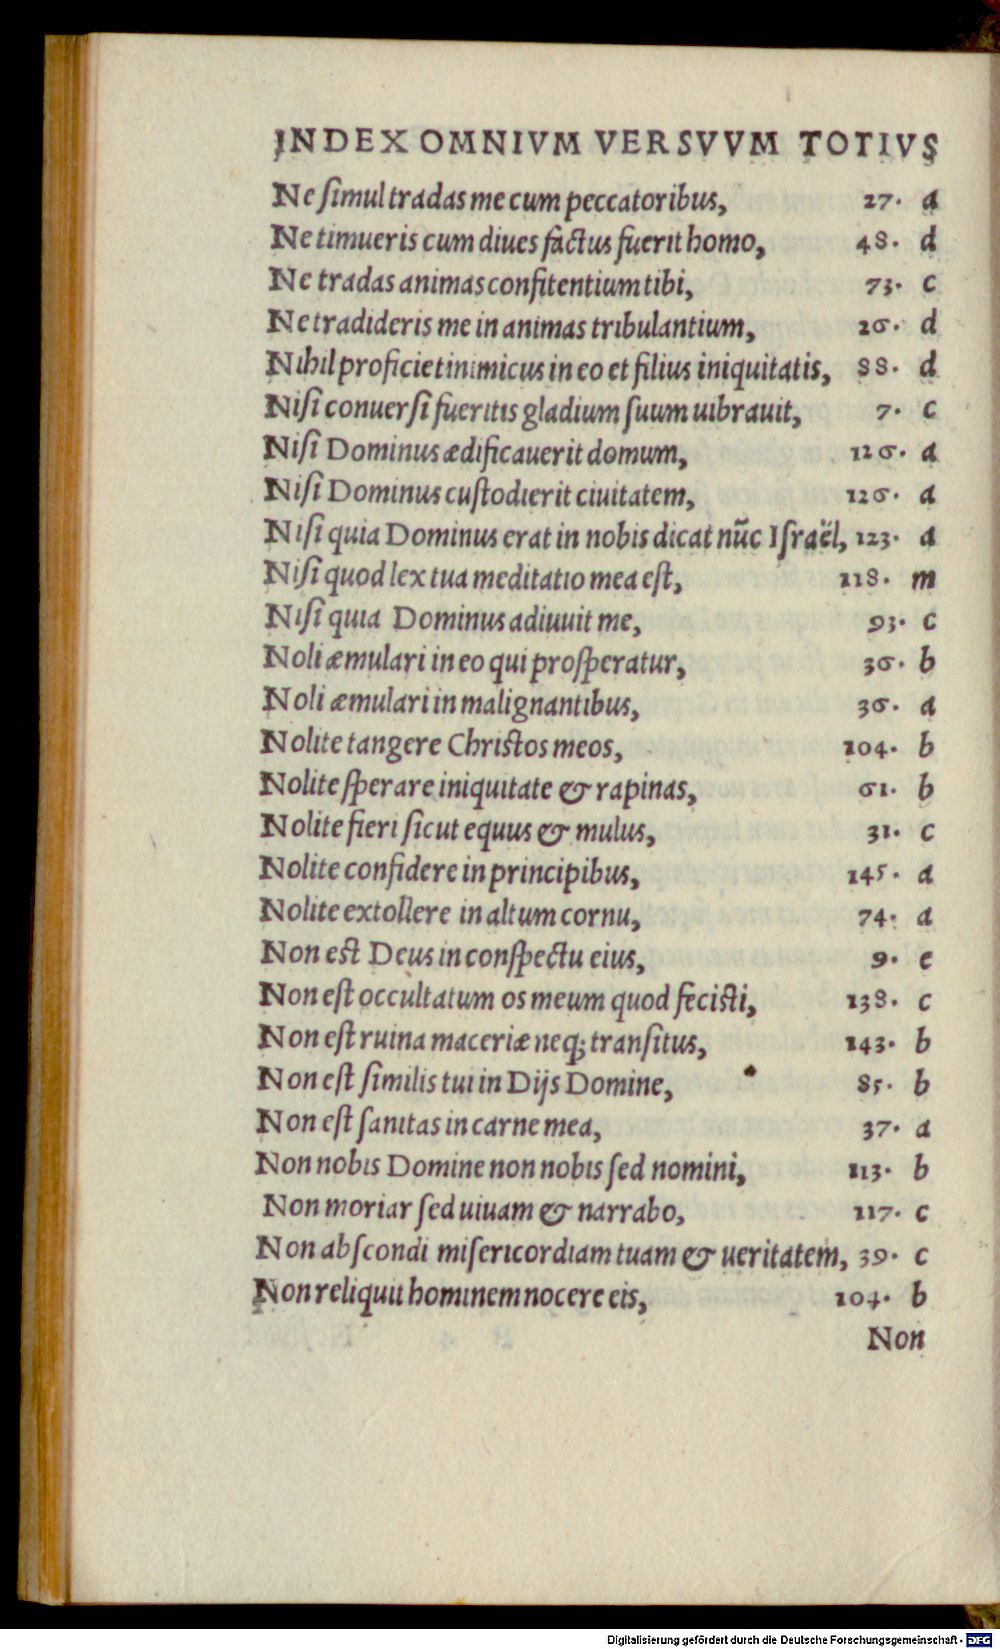 INDEX OMNIVM VERSVVM TOTIVS
Ne ſimul tradas me cum peccatoribus, 27. a
Ne timueris cum diues factus fuerit homo, 48. d
Ne tradas animas confitentium tibi, 73. c
Ne tradideris me in animas tribulantium, 26. d
Nihil proficiet inimicus in eo et filius iniquitatis, 88. d
Niſi conuerſi fueritis gladium ſuum uibrauit, 7. c
Niſi Dominus ædificauerit domum, 126. a
Niſi Dominus cuſtodierit ciuitatem, 126. a
Niſi quia Dominus erat in nobis dicat nūc Iſraël, 123. a
Niſi quod lex tua meditatio mea eſt, 118. m
Niſi quia Dominus adiuuit me, 93. c
Noli æmulari in eo qui proſperatur, 36. b
Noli æmulari in malignantibus, 36. a
Nolite tangere Chriſtos meos, 104. b
Nolite ſperare iniquitate & rapinas, 61. b
Nolite fieri ſicut equus & mulus, 31. c
Nolite confidere in principibus, 145. a
Nolite extollere in altum cornu, 74. a
Non eſt Deus in conſpectu eius, 9. e
Non eſt occultatum os meum quod feciſti, 138. c
Non eſt ruina maceriæ neq; tranſitus, 143. b
Non eſt ſimilis tui in Dijs Domine, 85. b
Non eſt ſanitas in carne mea, 37. a
Non nobis Domine non nobis ſed nomini, 113. b
Non moriar ſed uiuam & narrabo, 117. c
Non abſcondi miſericordiam tuam & ueritatem, 39. c
Non reliquit hominem nocere eis, 104. b
Non
Digitalisierung gefördert durch die Deutsche Forschungsgemeinschaft - DFG